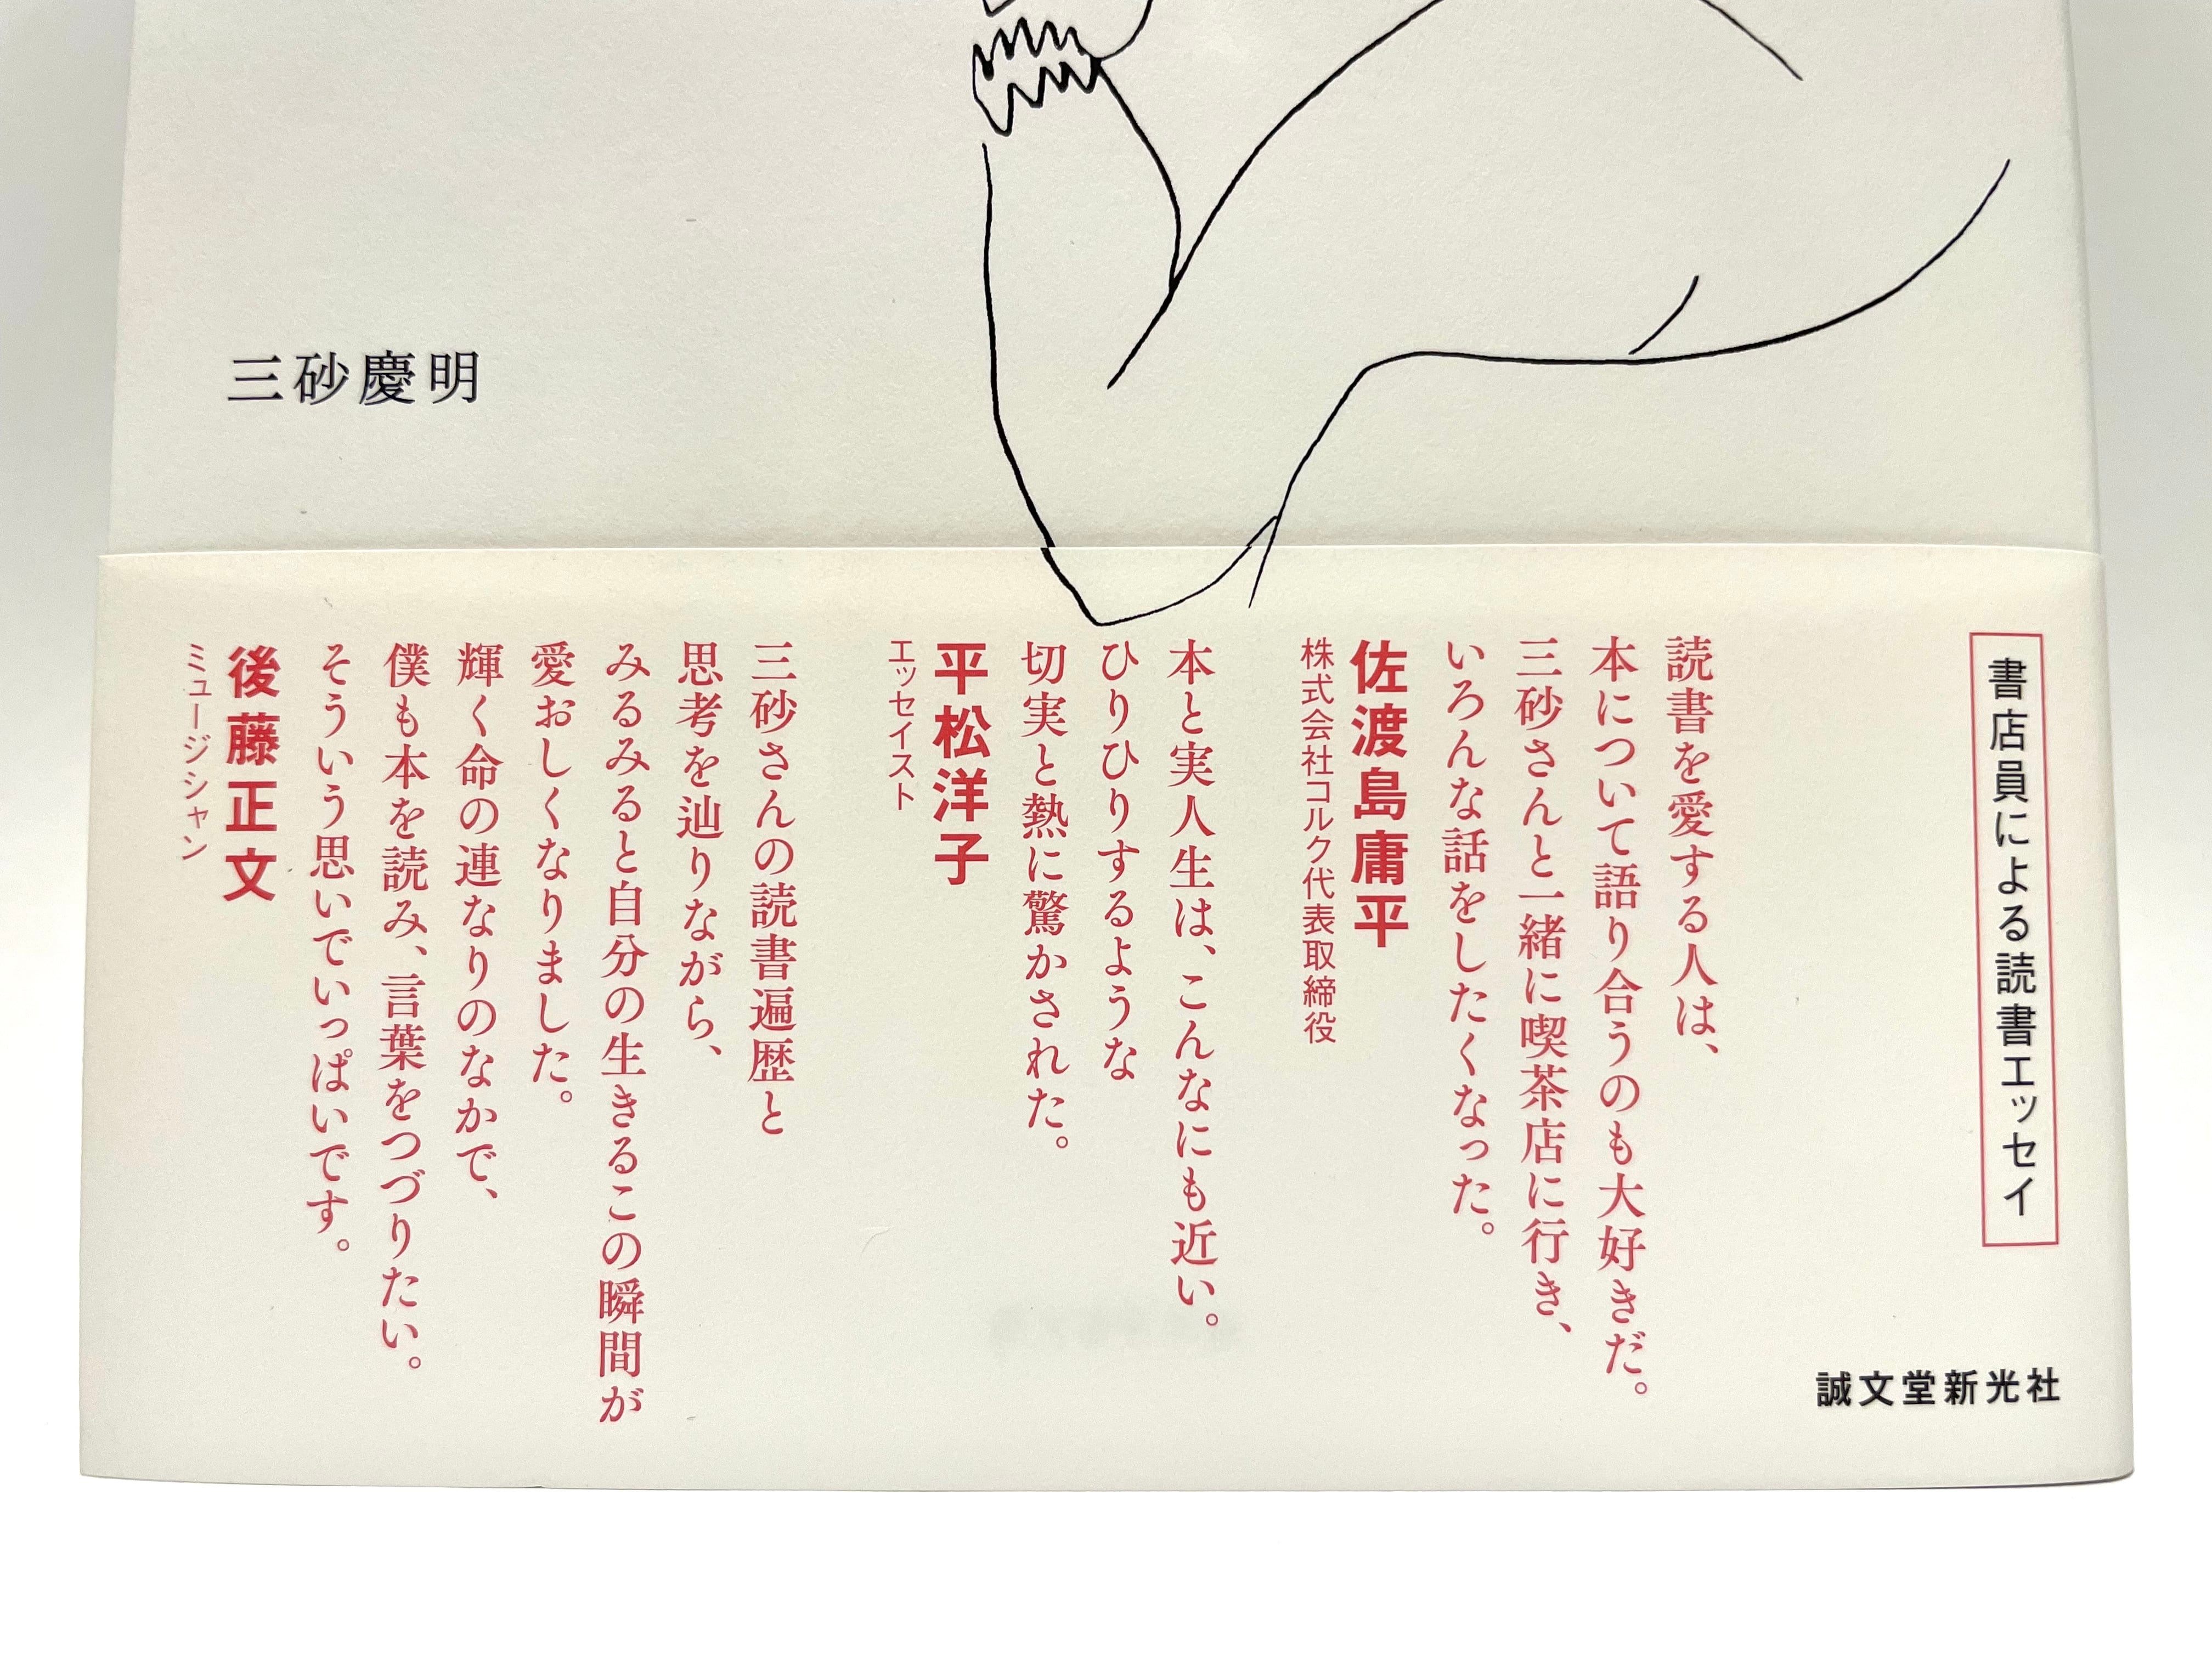 三砂慶明
書店員による読書エッセイ
読書を愛する人は、
本について語り合うのも大好きだ。
三砂さんと一緒に喫茶店に行き、
いろんな話をしたくなった。
佐渡島庸平
株式会社コルク代表取締役
本と実人生は、こんなにも近い。
ひりひりするような
切実と熱に驚かされた。
平松洋子
エッセイスト
三砂さんの読書遍歴と
思考を辿りながら、
みるみると自分の生きるこの瞬間が
愛おしくなりました。
輝く命の連なりのなかで、
僕も本を読み、言葉をつづりたい。
そういう思いでいっぱいです。
後藤正文
ミュージシャン
誠文堂新光社